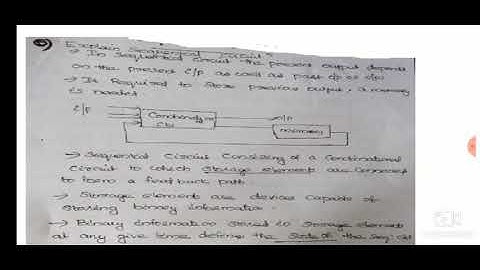 Explain Sequential Circuit?
→ In Sequential Circuit the present output depends
on the present i/p as well as past i/p or o/p.
→ It Required to store previous output, a memory
is needed.
i/p
Combinational
Ckt
o/p
memory
→ Sequential Circuit Consisting of a Combinational
Circuit to which storage elements are connected
to form a feedback path.
→ Storage elements are devices capable of
storing binary information.
→ Binary information stored in storage element
at any give time define the state of the seq: ckt